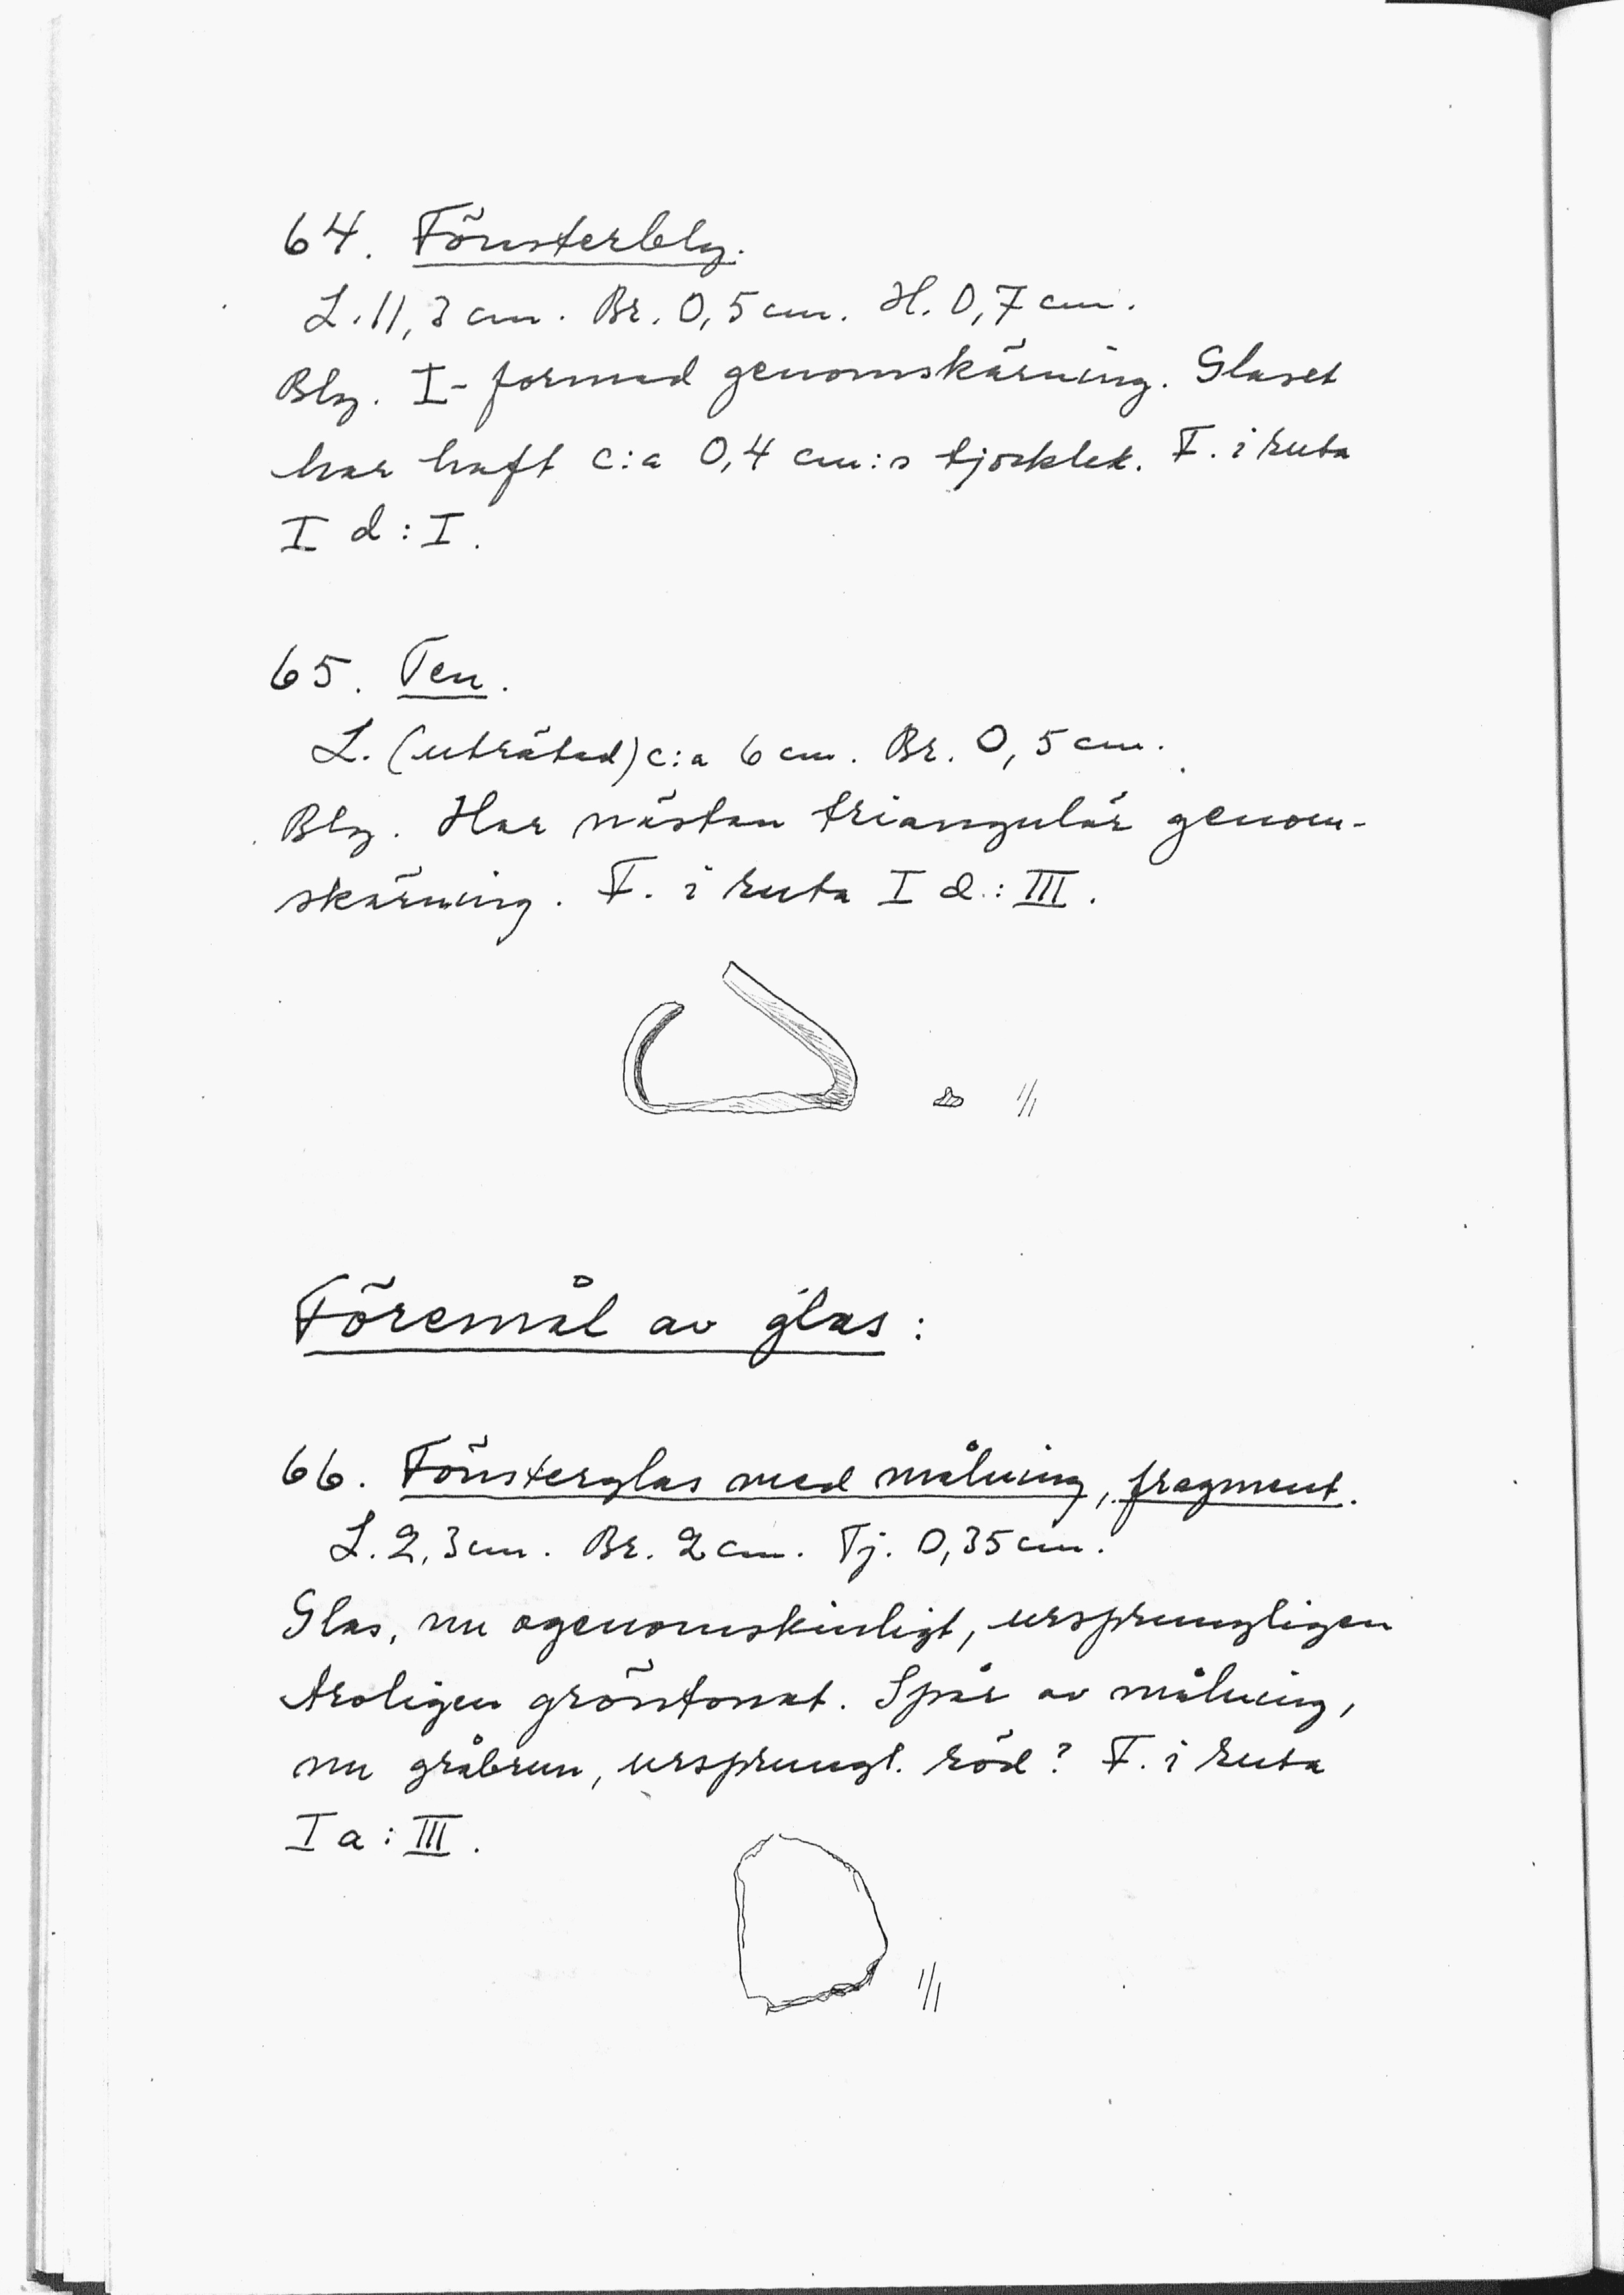 64. Fönsterbly.
L. 11,3 cm. Br. 0,5 cm. H. 0,7 cm.
Bly. I-formad genomskärning. Glaset
har haft c:a 0,4 cm:s tjocklek. F. i ruta
I d : I.
65. Ten.
L. (uträtad) c:a 6 cm. Br. 0,5 cm.
Bly. Har nästan triangulär genom-
skärning. F. i ruta I d : III.
1/1
Föremål av glas :
66. Fönsterglas med målning, fragment.
L. 2,3 cm. Br. 2 cm. Tj. 0,35 cm.
Glas, nu ogenomskinligt, ursprungligen
troligen gröntonat. Spår av målning,
nu gråbrun, ursprungl. röd? F. i ruta
I a : III.
1/1